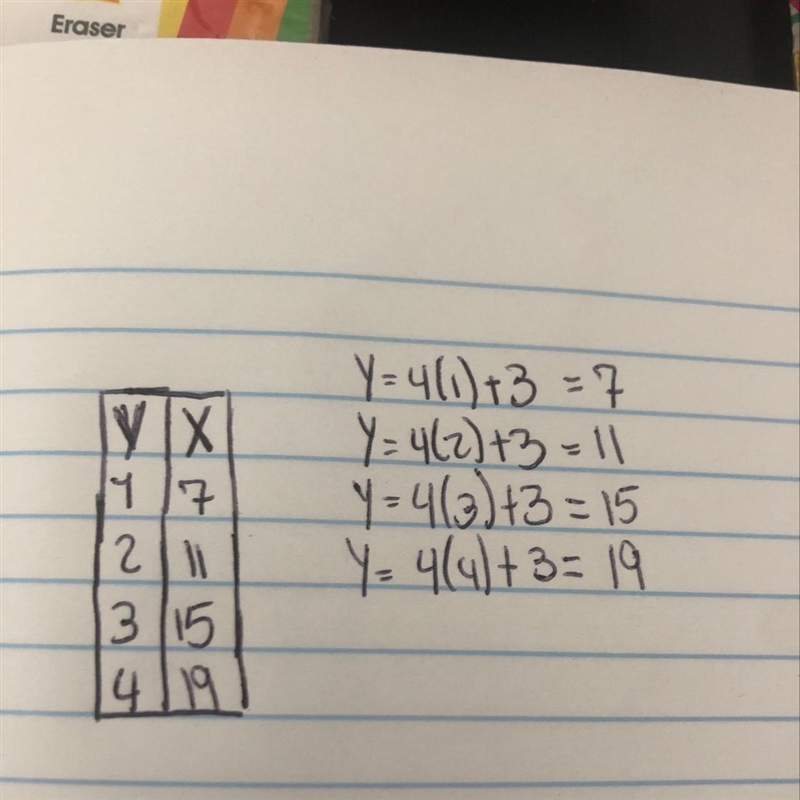 Eraser
Y X
1 7
2 11
3 15
4 19
Y = 4(1) + 3 = 7
Y = 4(2) + 3 = 11
Y = 4(3) + 3 = 15
Y = 4(4) + 3 = 19